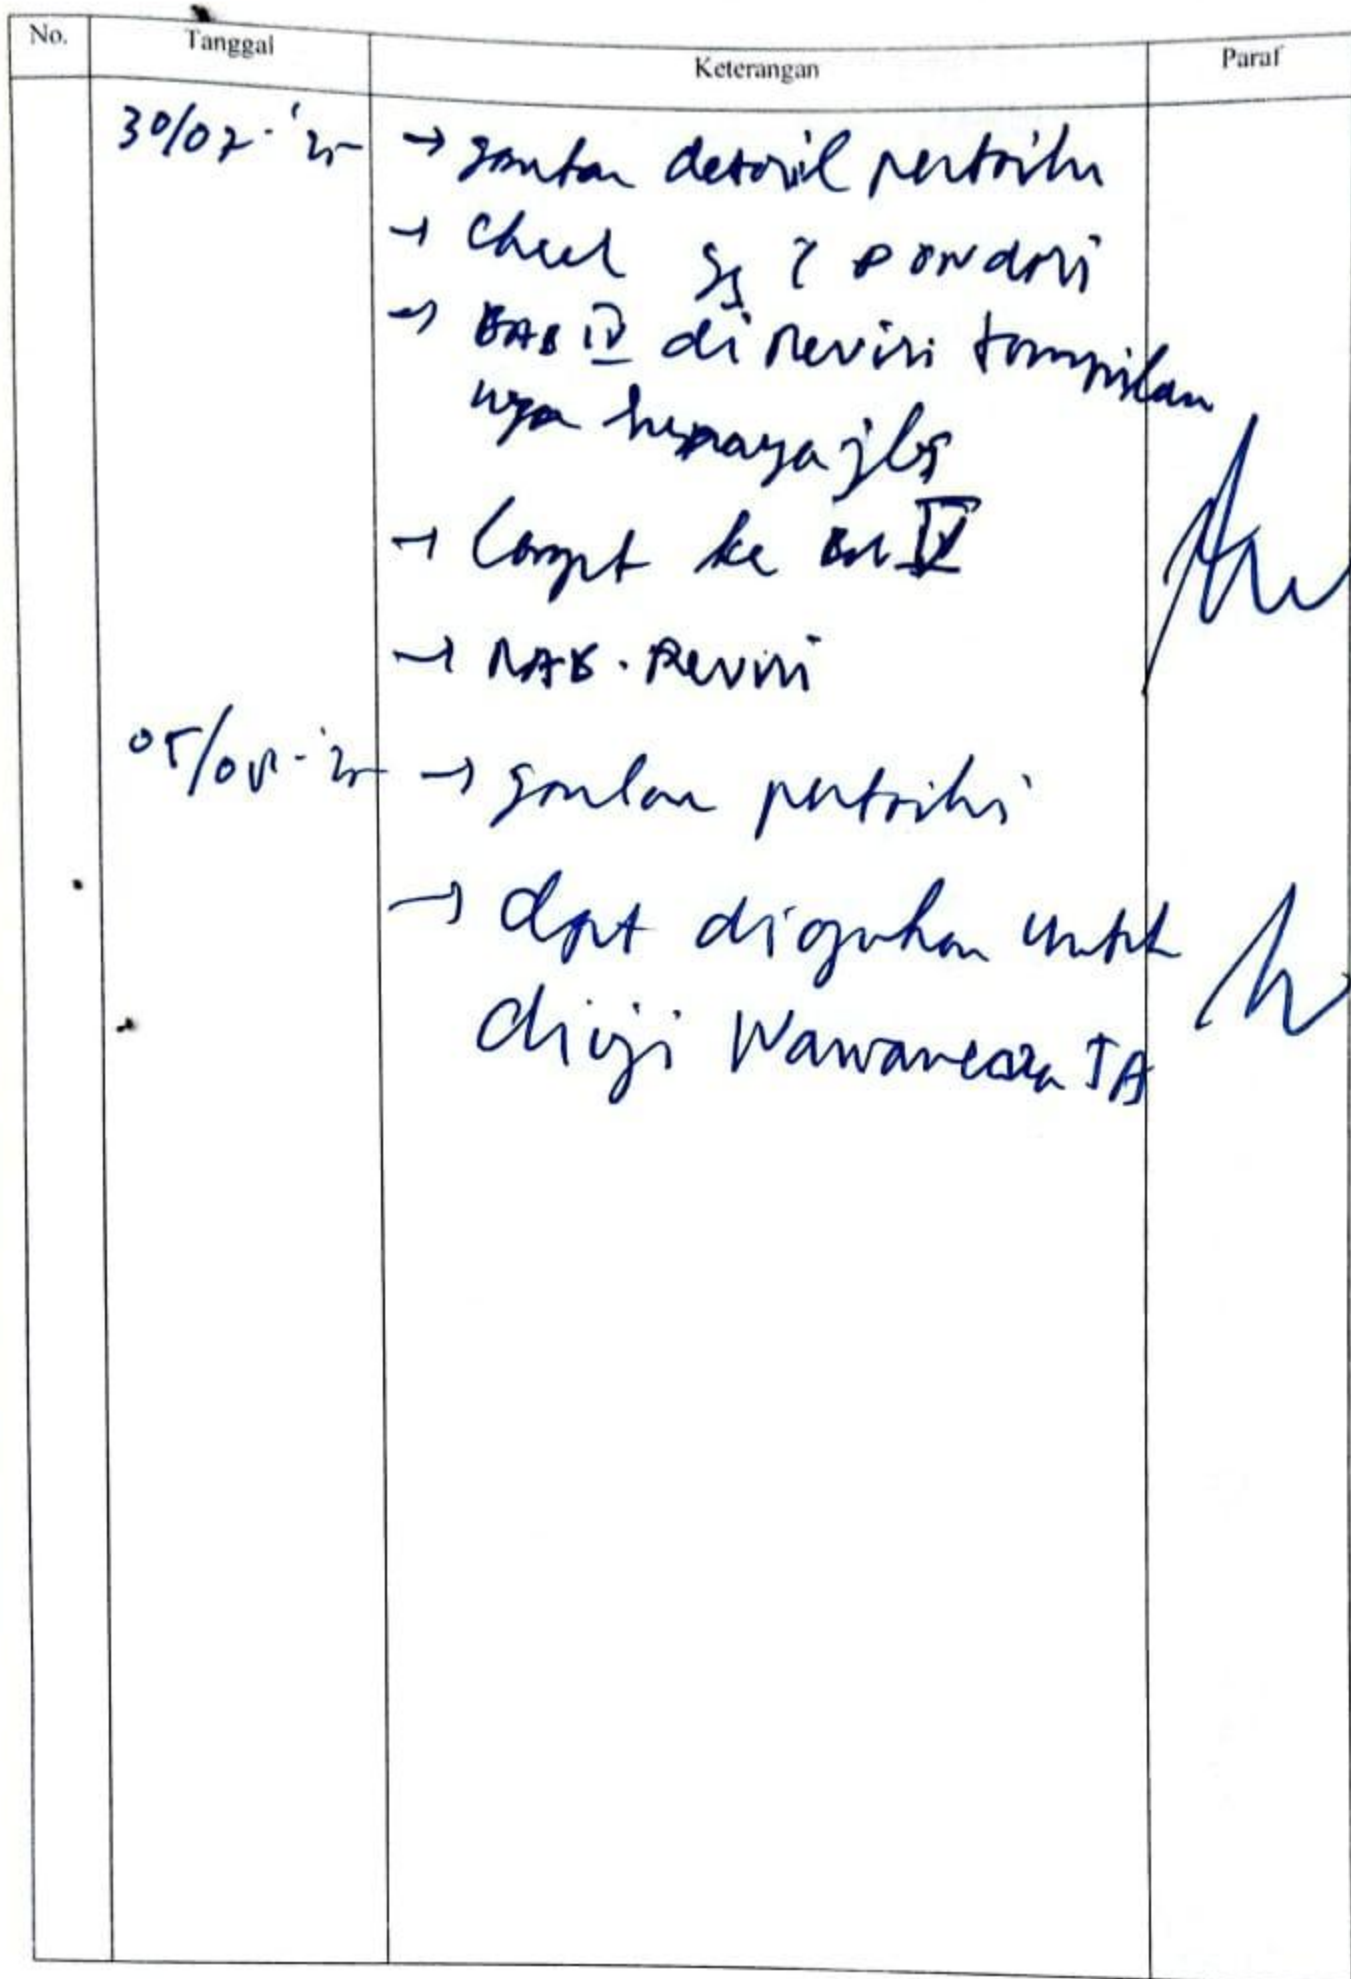 No. Tanggal Keterangan Paraf
30/07-'25 → gambar detail perbaiki
→ Check
→ BAB IV di Revisi tampilan
nya supaya jls
→ Lanjut ke BAB V
→ RAB. Revisi
05/08-'25 → gambar perbaiki
→ dpt diajukan untuk
diuji Wawancara TA